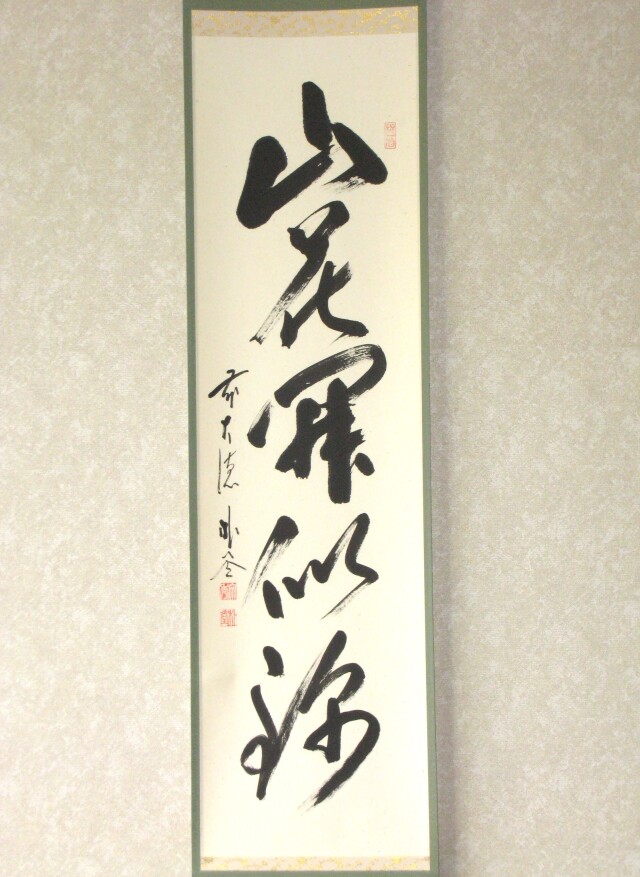 山花開似錦
前大徳